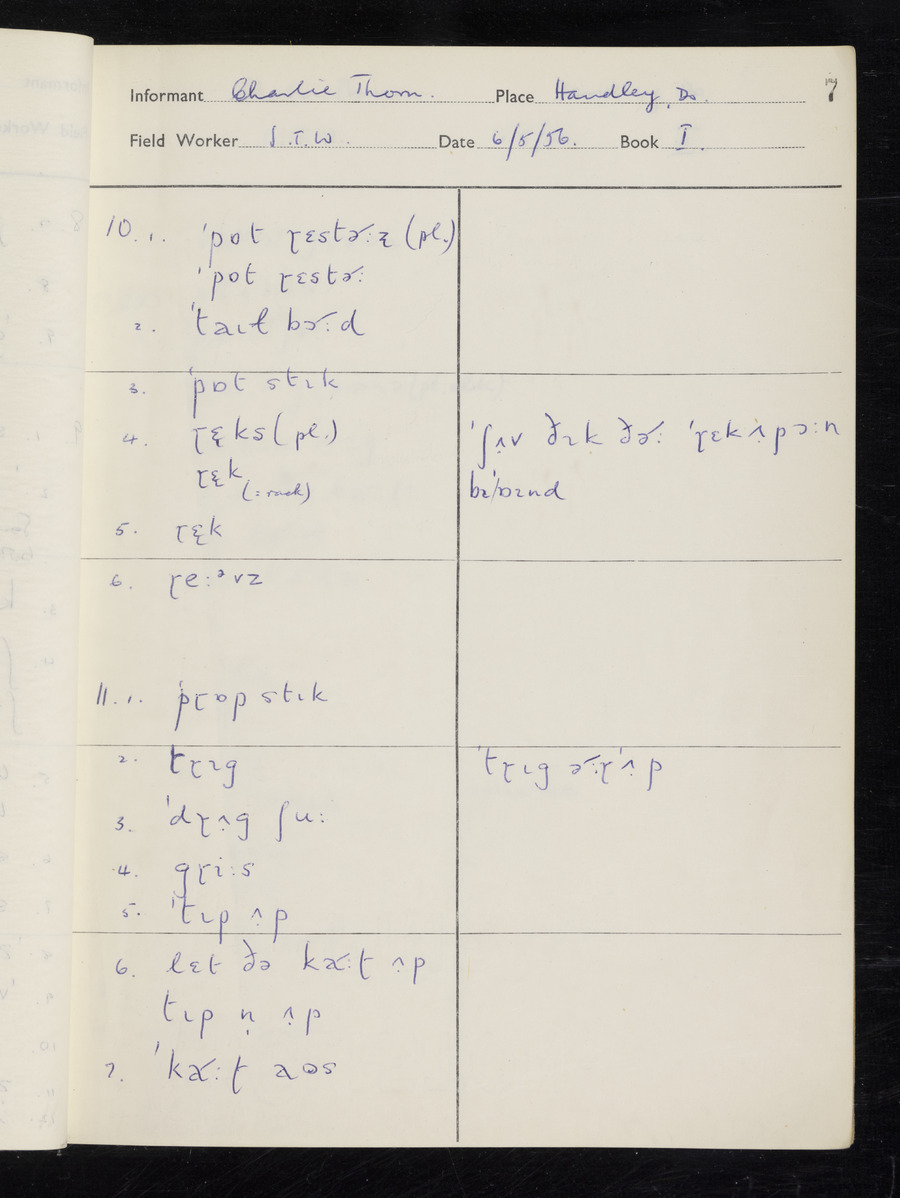 7
Informant Charlie Thorn. Place Handley, Do.
Field Worker S.T.W. Date 6/5/56. Book I.
10. 1. ˈpɒt ɽɛstɚːz̜ (pl.)
ˈpɒt ɽɛstɚː
2. ˈtaɪɫ bɚːd
3. ˈpɒt stɪk
4. ɽɛ̨ks (pl.)
ɽɛ̨k (= rack)
ˈʃʌ̣v ðɪk ðɚː ˈɽɛk ʌ̣pɔːn
bɪˈɒɪnd
5. ɽɛ̨k
6. ɽeːᵊvz
11. 1. ˈpɽɒp stɪk
2. tɽɪg
ˈtɽɪg ɚːɽˈʌ̣p
3. ˈdɽʌ̣g ʃuː
4. gɽiːs
5. ˈtɪp ʌ̣p
6. lɛt ðə kɑ˞ːʈ ʌ̣p
tɪp n̩ ʌ̣p
7. ˈkɑ˞ːʈ aʊs